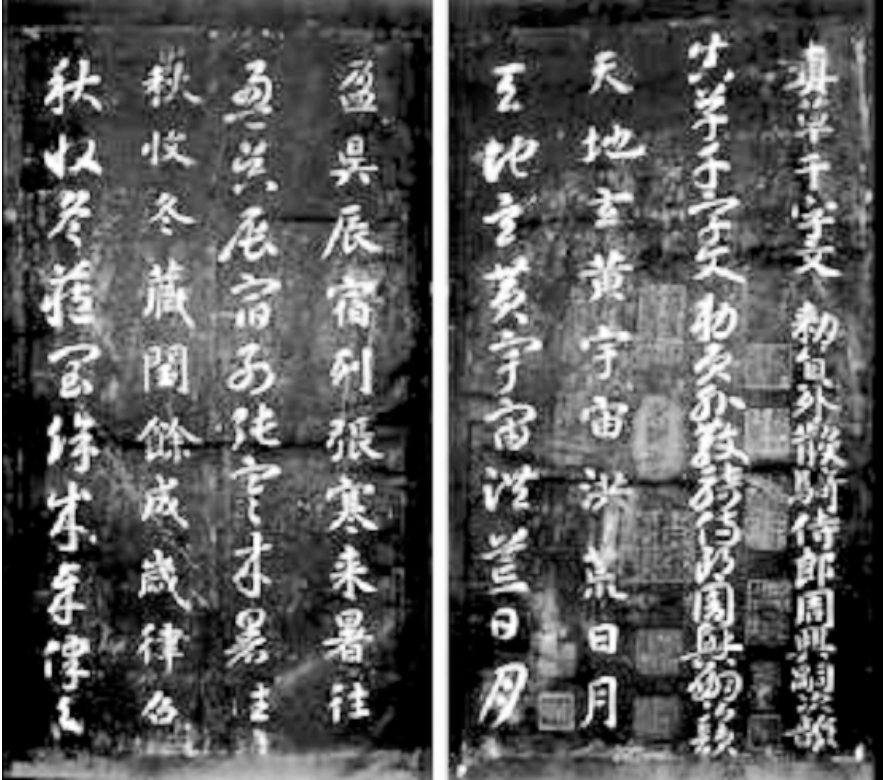 真草千字文 勅員外散騎侍郎周興嗣次韻
真草千字文 勅員外散騎侍郎周興嗣次韻
天地玄黄宇宙洪荒日月
天地玄黄宇宙洪荒日月
盈昃辰宿列張寒来暑往
盈昃辰宿列張寒来暑往
秋收冬藏閏餘成歲律呂
秋收冬藏閏餘成歲律呂